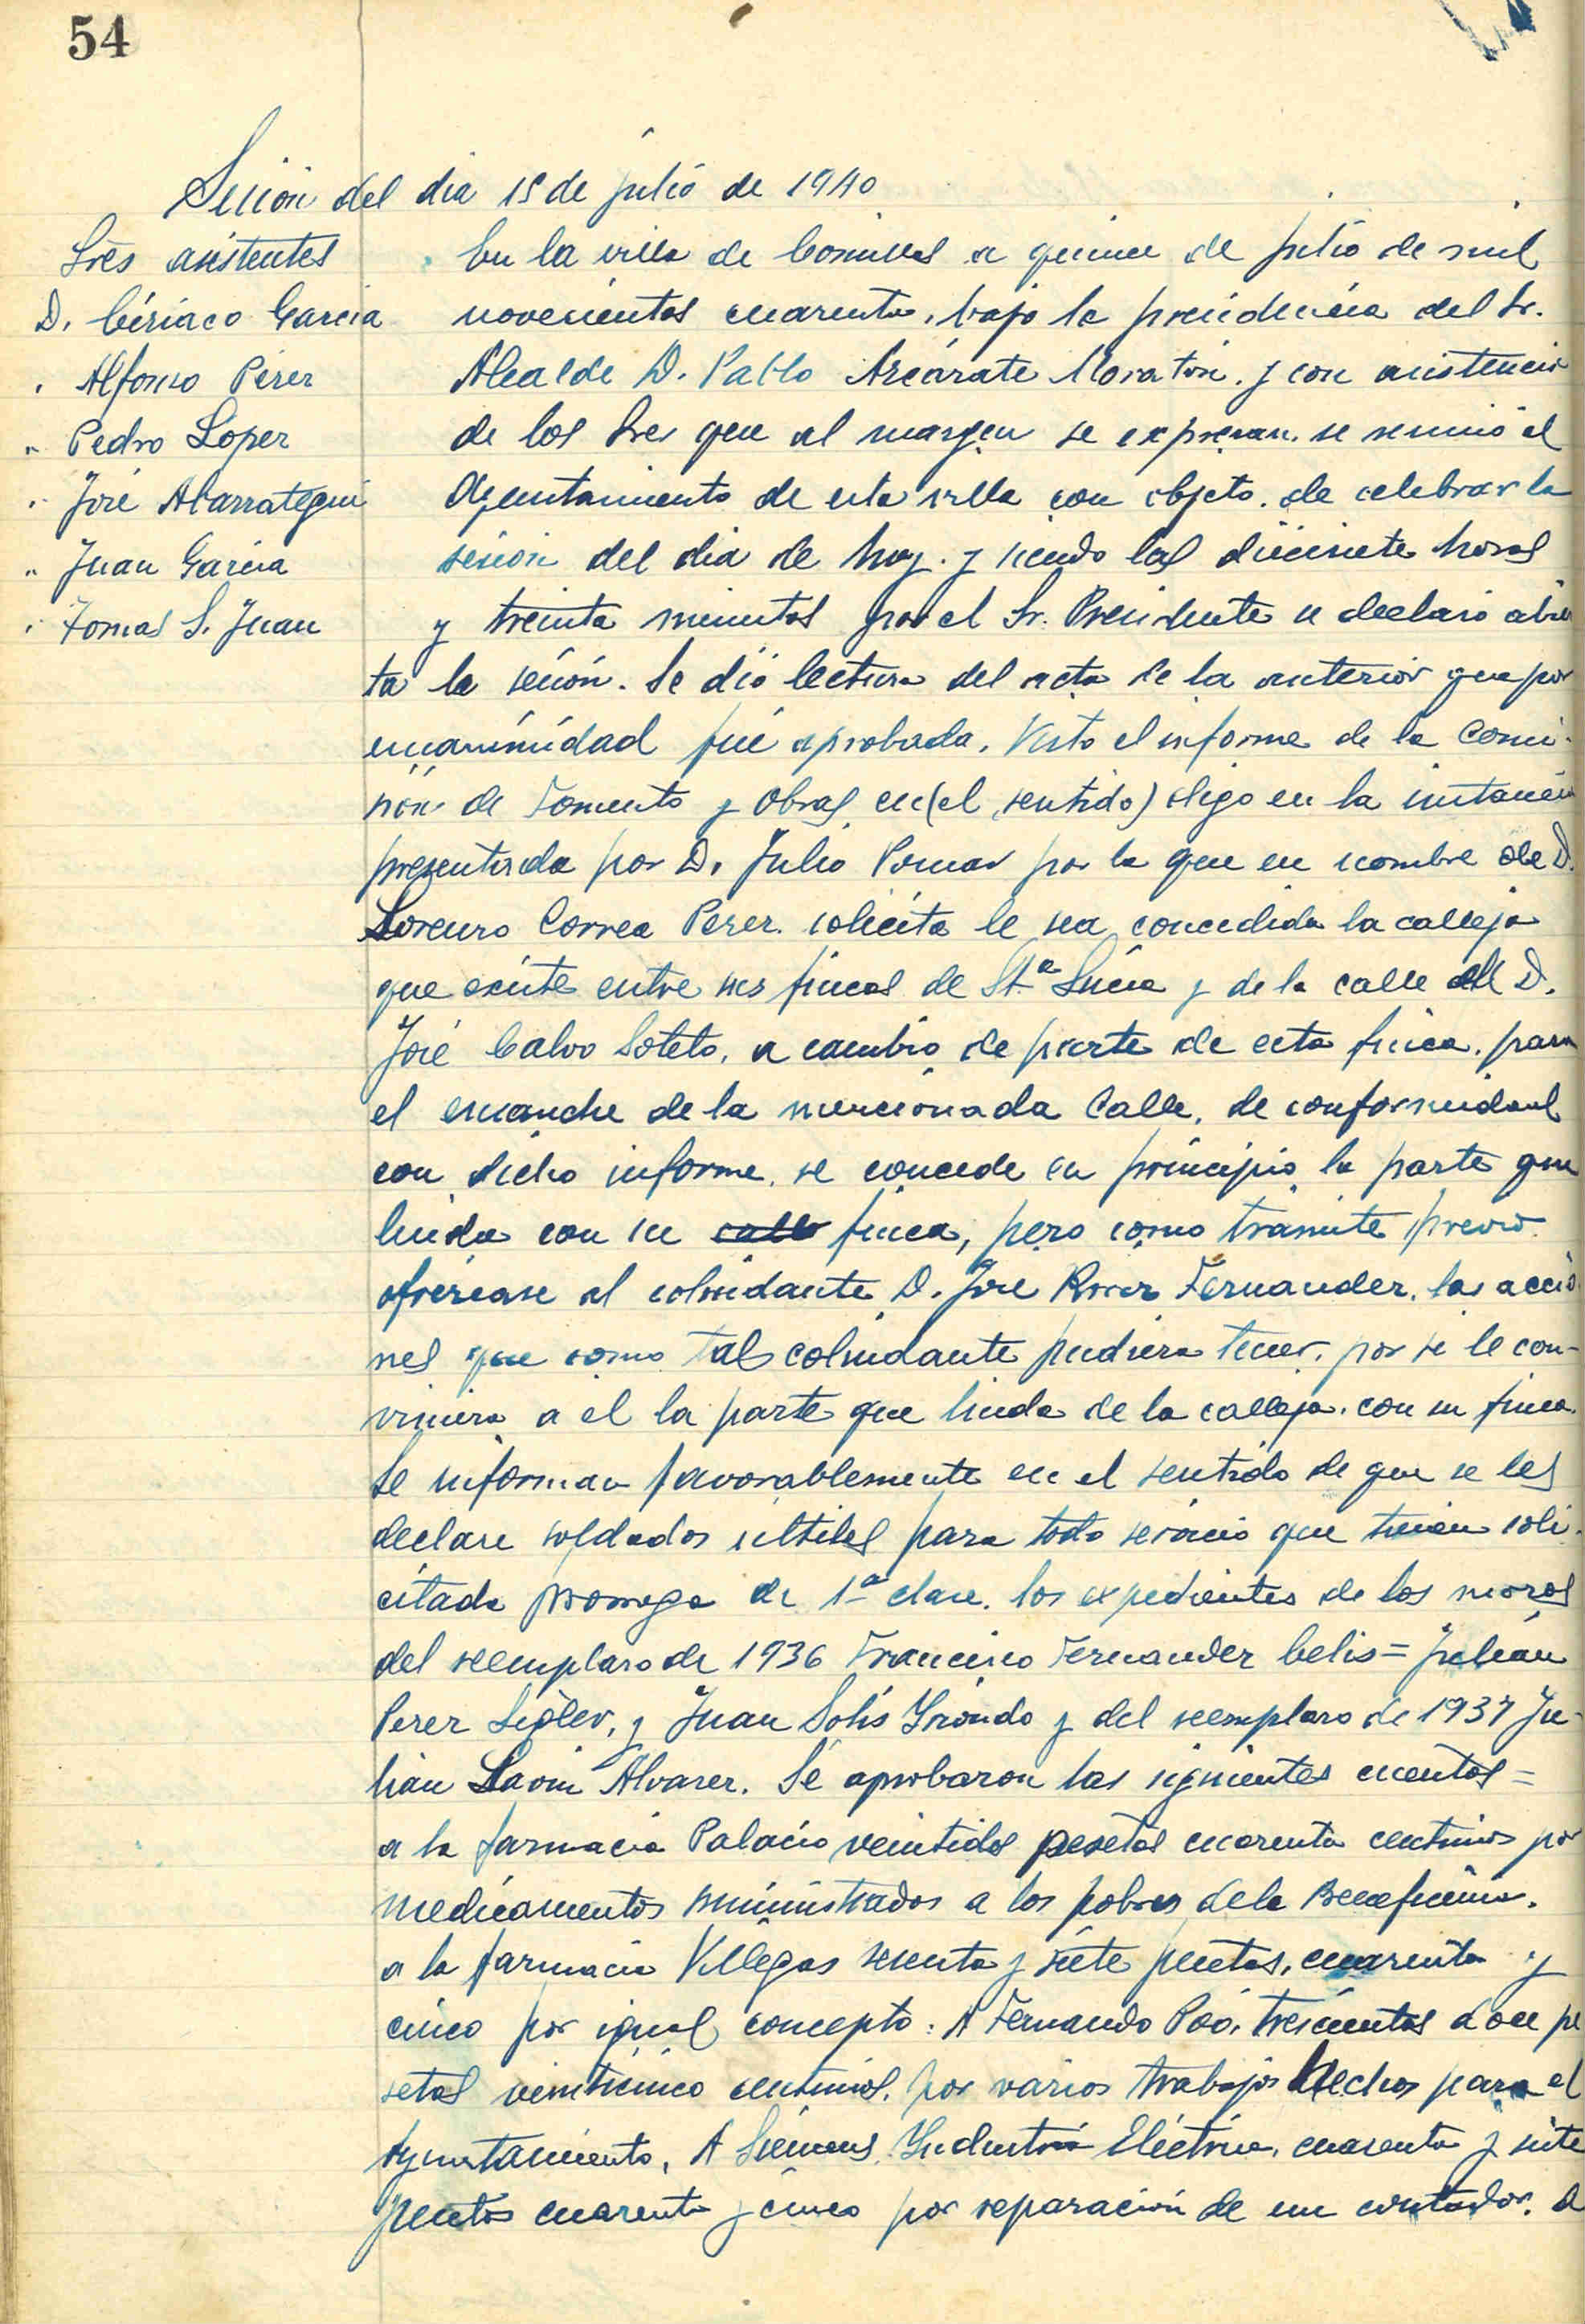 54
Sesión del dia 15 de julio de 1940
Sres asistentes
D. Ciriaco Garcia
" Alfonso Pérez
" Pedro Lopez
" José Abarrategui
" Juan Garcia
" Tomas S. Juan
En la villa de Comillas a quince de julio de mil
novecientos cuarenta, bajo la presidencia del Sr.
Alcalde D. Pablo Arcárate Moratón. y con asistencia
de los Sres que al margen se expresan. se reunió el
Ayuntamiento de esta villa con objeto. de celebrar la
sesion del dia de hoy. y siendo las diecisiete horas
y treinta minutos por el Sr. Presidente se declaró abier
ta la sesión. Se dió lectura del acta de la anterior que por
unanimidad fué aprobada. Visto el informe de la Comi-
sión de Fomento y Obras en (el sentido) digo en la instancia
presentada por D. Julio Pomar por la que en nombre de D.
Lorenzo Correa Perez. solicita le sea concedida la calleja
que existe entre sus fincas de Stª Lucia y de la calle de D.
José Calvo Sotelo, a cambio de parte de esta finca. para
el ensanche de la mencionada Calle, de conformidad
con dicho informe. se concede en principio la parte que
linda con su calle finca, pero como trámite previo
ofrézcase al colindante D. Jose Fernandez. las accio
nes que como tal colindante pudiera tener, por si le con-
viniera a el la parte que linda de la calleja. con su finca.
Se informan favorablemente en el sentido de que se les
declare soldados utiles para todo servicio que tienen soli-
citada prorroga de 1ª clase. los expedientes de los mozos
del reemplazo de 1936 Francisco Fernandez Celis = Julián
Perez Sigler, y Juan Solis Yrióndo y del reemplazo de 1937 Ju-
lian Lavin Alvarez. Se aprobaron las siguientes cuentas =
a la farmacia Palacio veintidos pesetas cuarenta centimos por
medicamentos suministrados a los pobres de la Beneficencia.
a la farmacia Villegas sesenta y siete pesetas, cuarenta y
cinco por igual concepto. A Fernando Poó. trescientas doce pe
setas veinticinco centimos. por varios trabajos hechos para el
Ayuntamiento. A Siemens Yndustria Eléctrica. cuarenta y siete
pesetas cuarenta y cinco por reparación de un contador. A